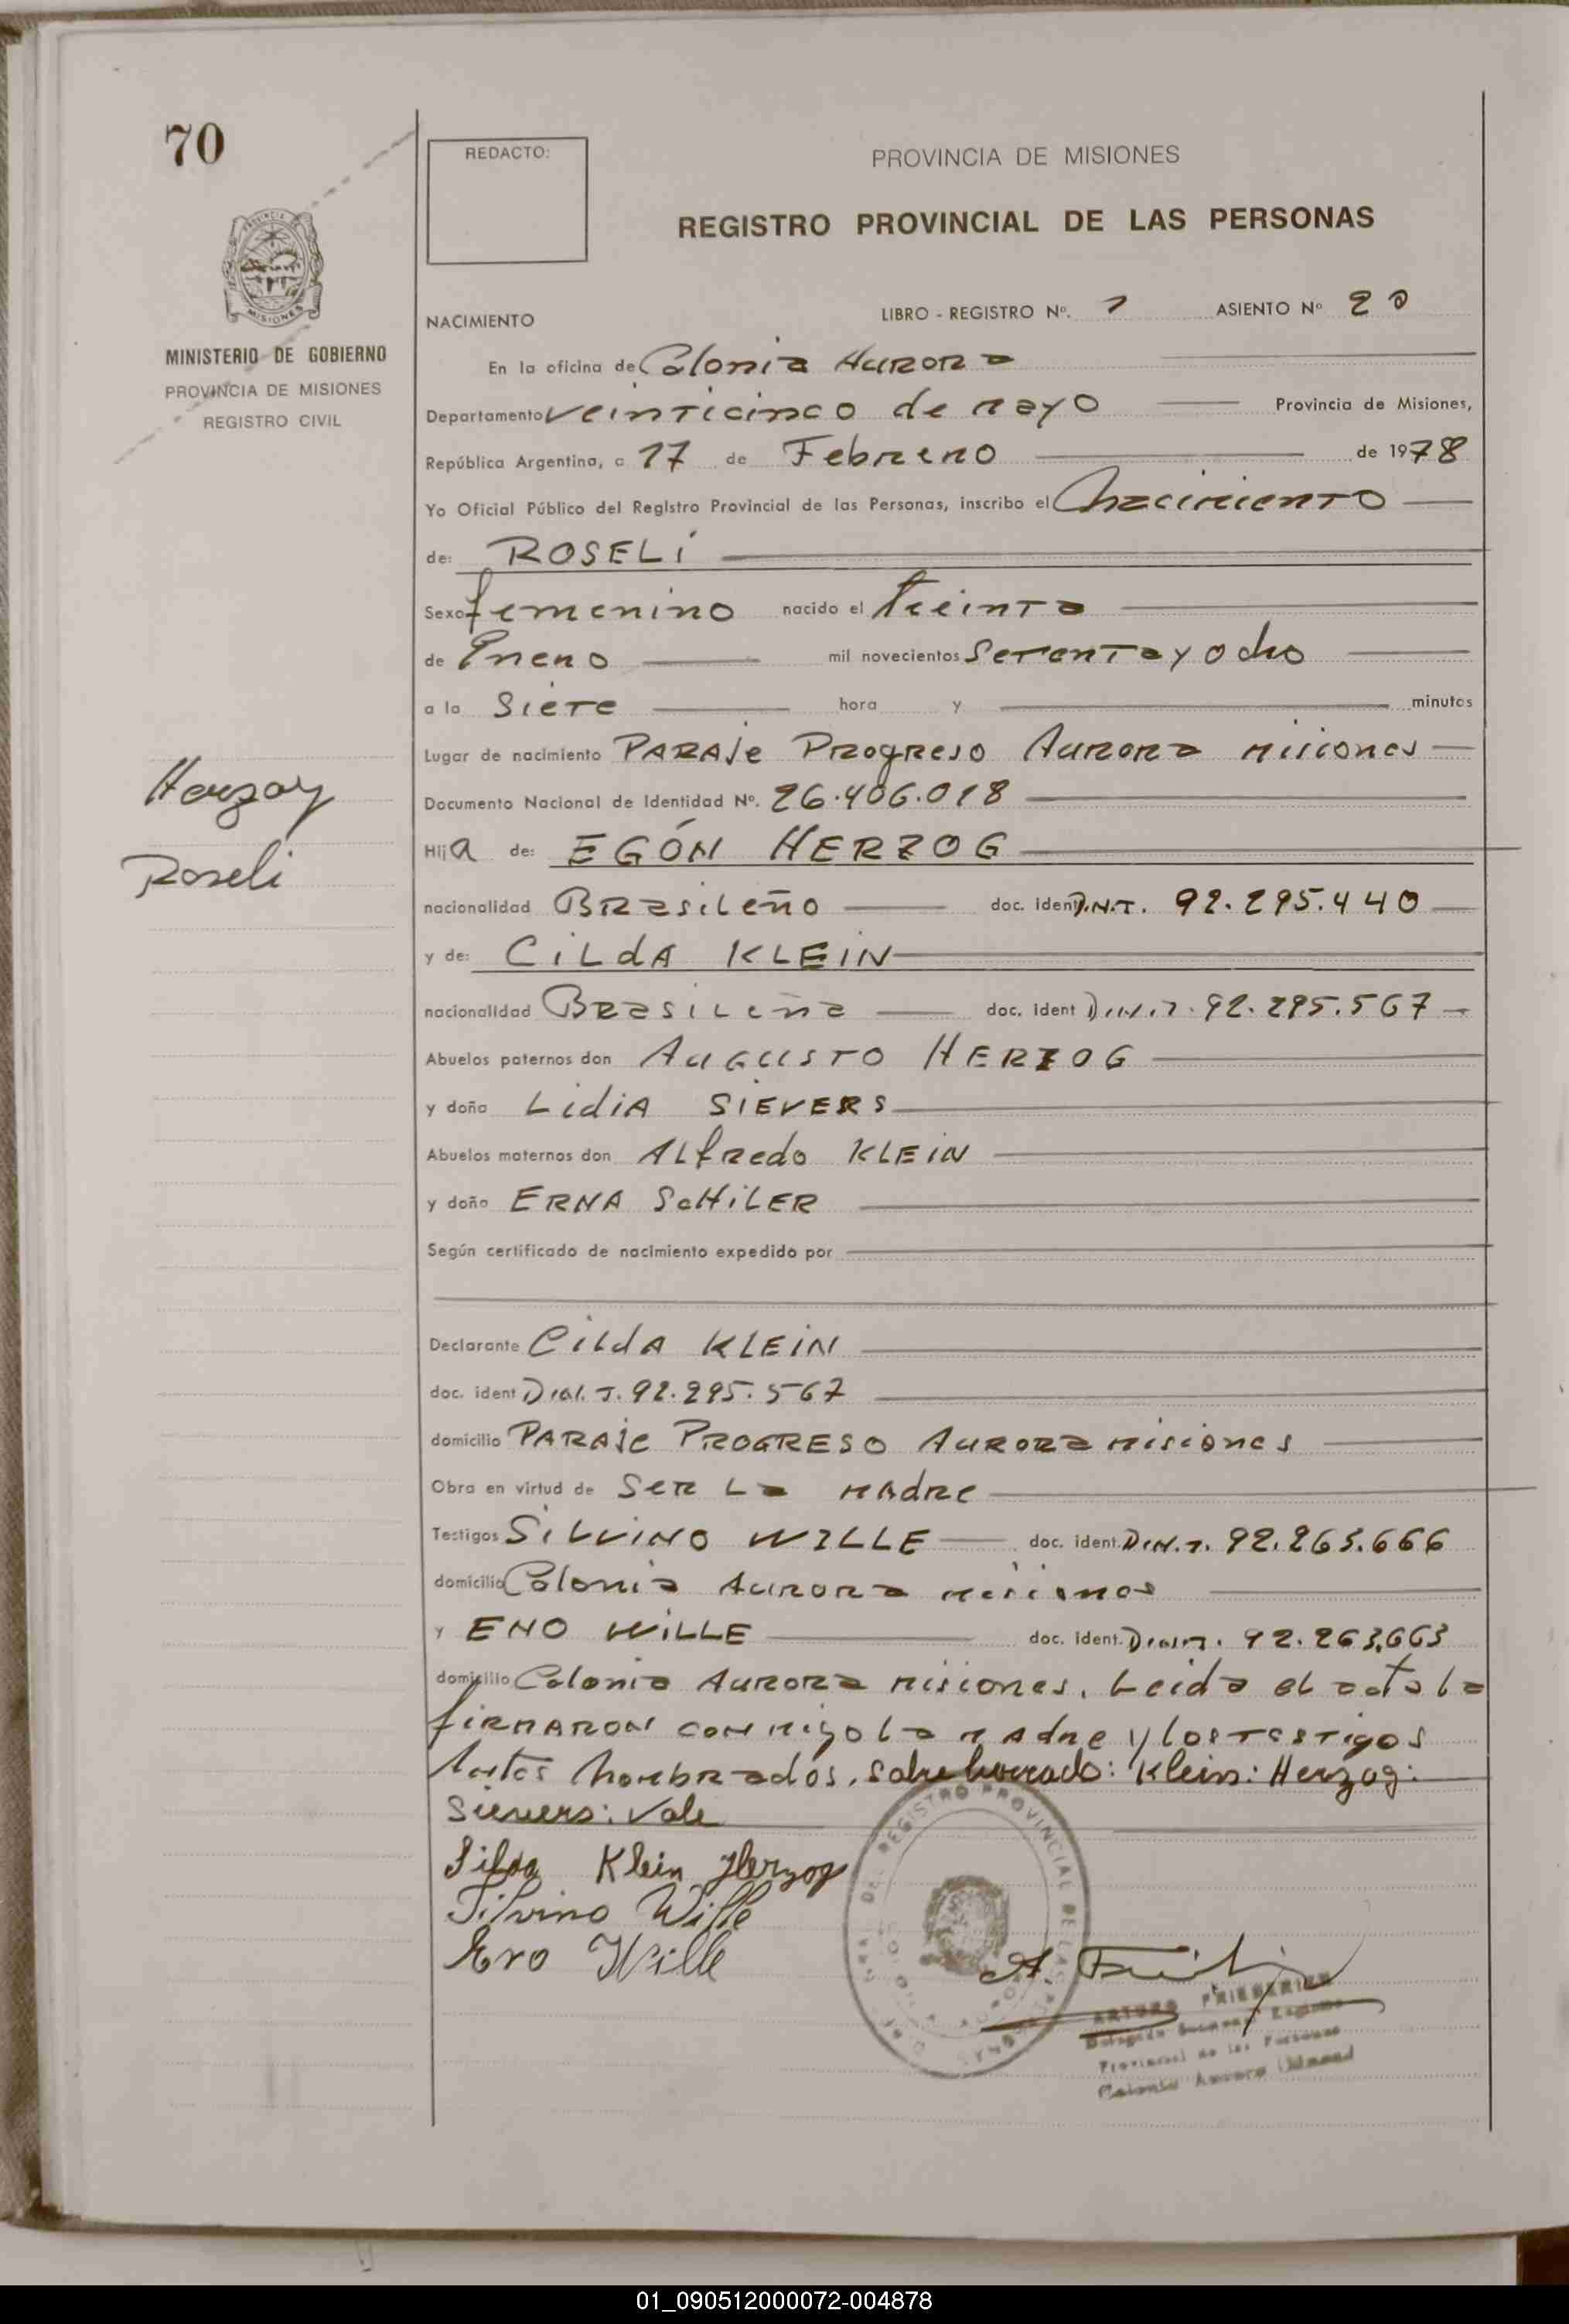 70
REDACTO:
PROVINCIA DE MISIONES
REGISTRO PROVINCIAL DE LAS PERSONAS
PROVINCIA DE
MISIONES
MINISTERIO DE GOBIERNO
PROVINCIA DE MISIONES
REGISTRO CIVIL
NACIMIENTO LIBRO - REGISTRO Nº. 1 ASIENTO Nº 20
En la oficina de Colonia Aurora
Departamento veinticinco de mayo Provincia de Misiones,
República Argentina, a 17 de Febrero de 1978
Yo Oficial Público del Registro Provincial de las Personas, inscribo el nacimiento
de: ROSELI
Sexo femenino nacido el treinta
de Enero mil novecientos setenta y ocho
a la siete hora y minutos
Lugar de nacimiento PARAJe Progreso Aurora misiones
Herzog
Documento Nacional de Identidad Nº. 26.406.018
Roseli
Hija de: EGÓN HERZOG
nacionalidad Brasileño doc. ident D.N.I. 92.295.440
y de: CILdA KLEIN
nacionalidad Brasileña doc. ident D.N.I. 92.295.567
Abuelos paternos don AUGUSTO HERZOG
y doña LidiA SIEVERS
Abuelos maternos don ALfredo KLEIN
y doña ERNA SCHILER
Según certificado de nacimiento expedido por
Declarante CILdA KLEIN
doc. ident D.N.I. 92.295.567
domicilio PARAJe PROGRESO AURORA misiones
Obra en virtud de Ser La madre
Testigos SILVINO WILLE doc. ident. D.N.I. 92.263.666
domicilio Colonia Aurora misiones
y ENO WILLE doc. ident. D.N.I. 92.263.663
domicilio Colonia Aurora misiones. Leida el acta la
firmaron conmigo la madre y los testigos
Antes nombrados. Sobre borrado: Klein: Herzog:
Sievers: Vale
Silda Klein Herzog
Silvino Wille
Eno Wille
REGISTRO PROVINCIAL DE LAS PERSONAS
ARTURO
Provincial de las Personas
Colonia Aurora
01_090512000072-004878